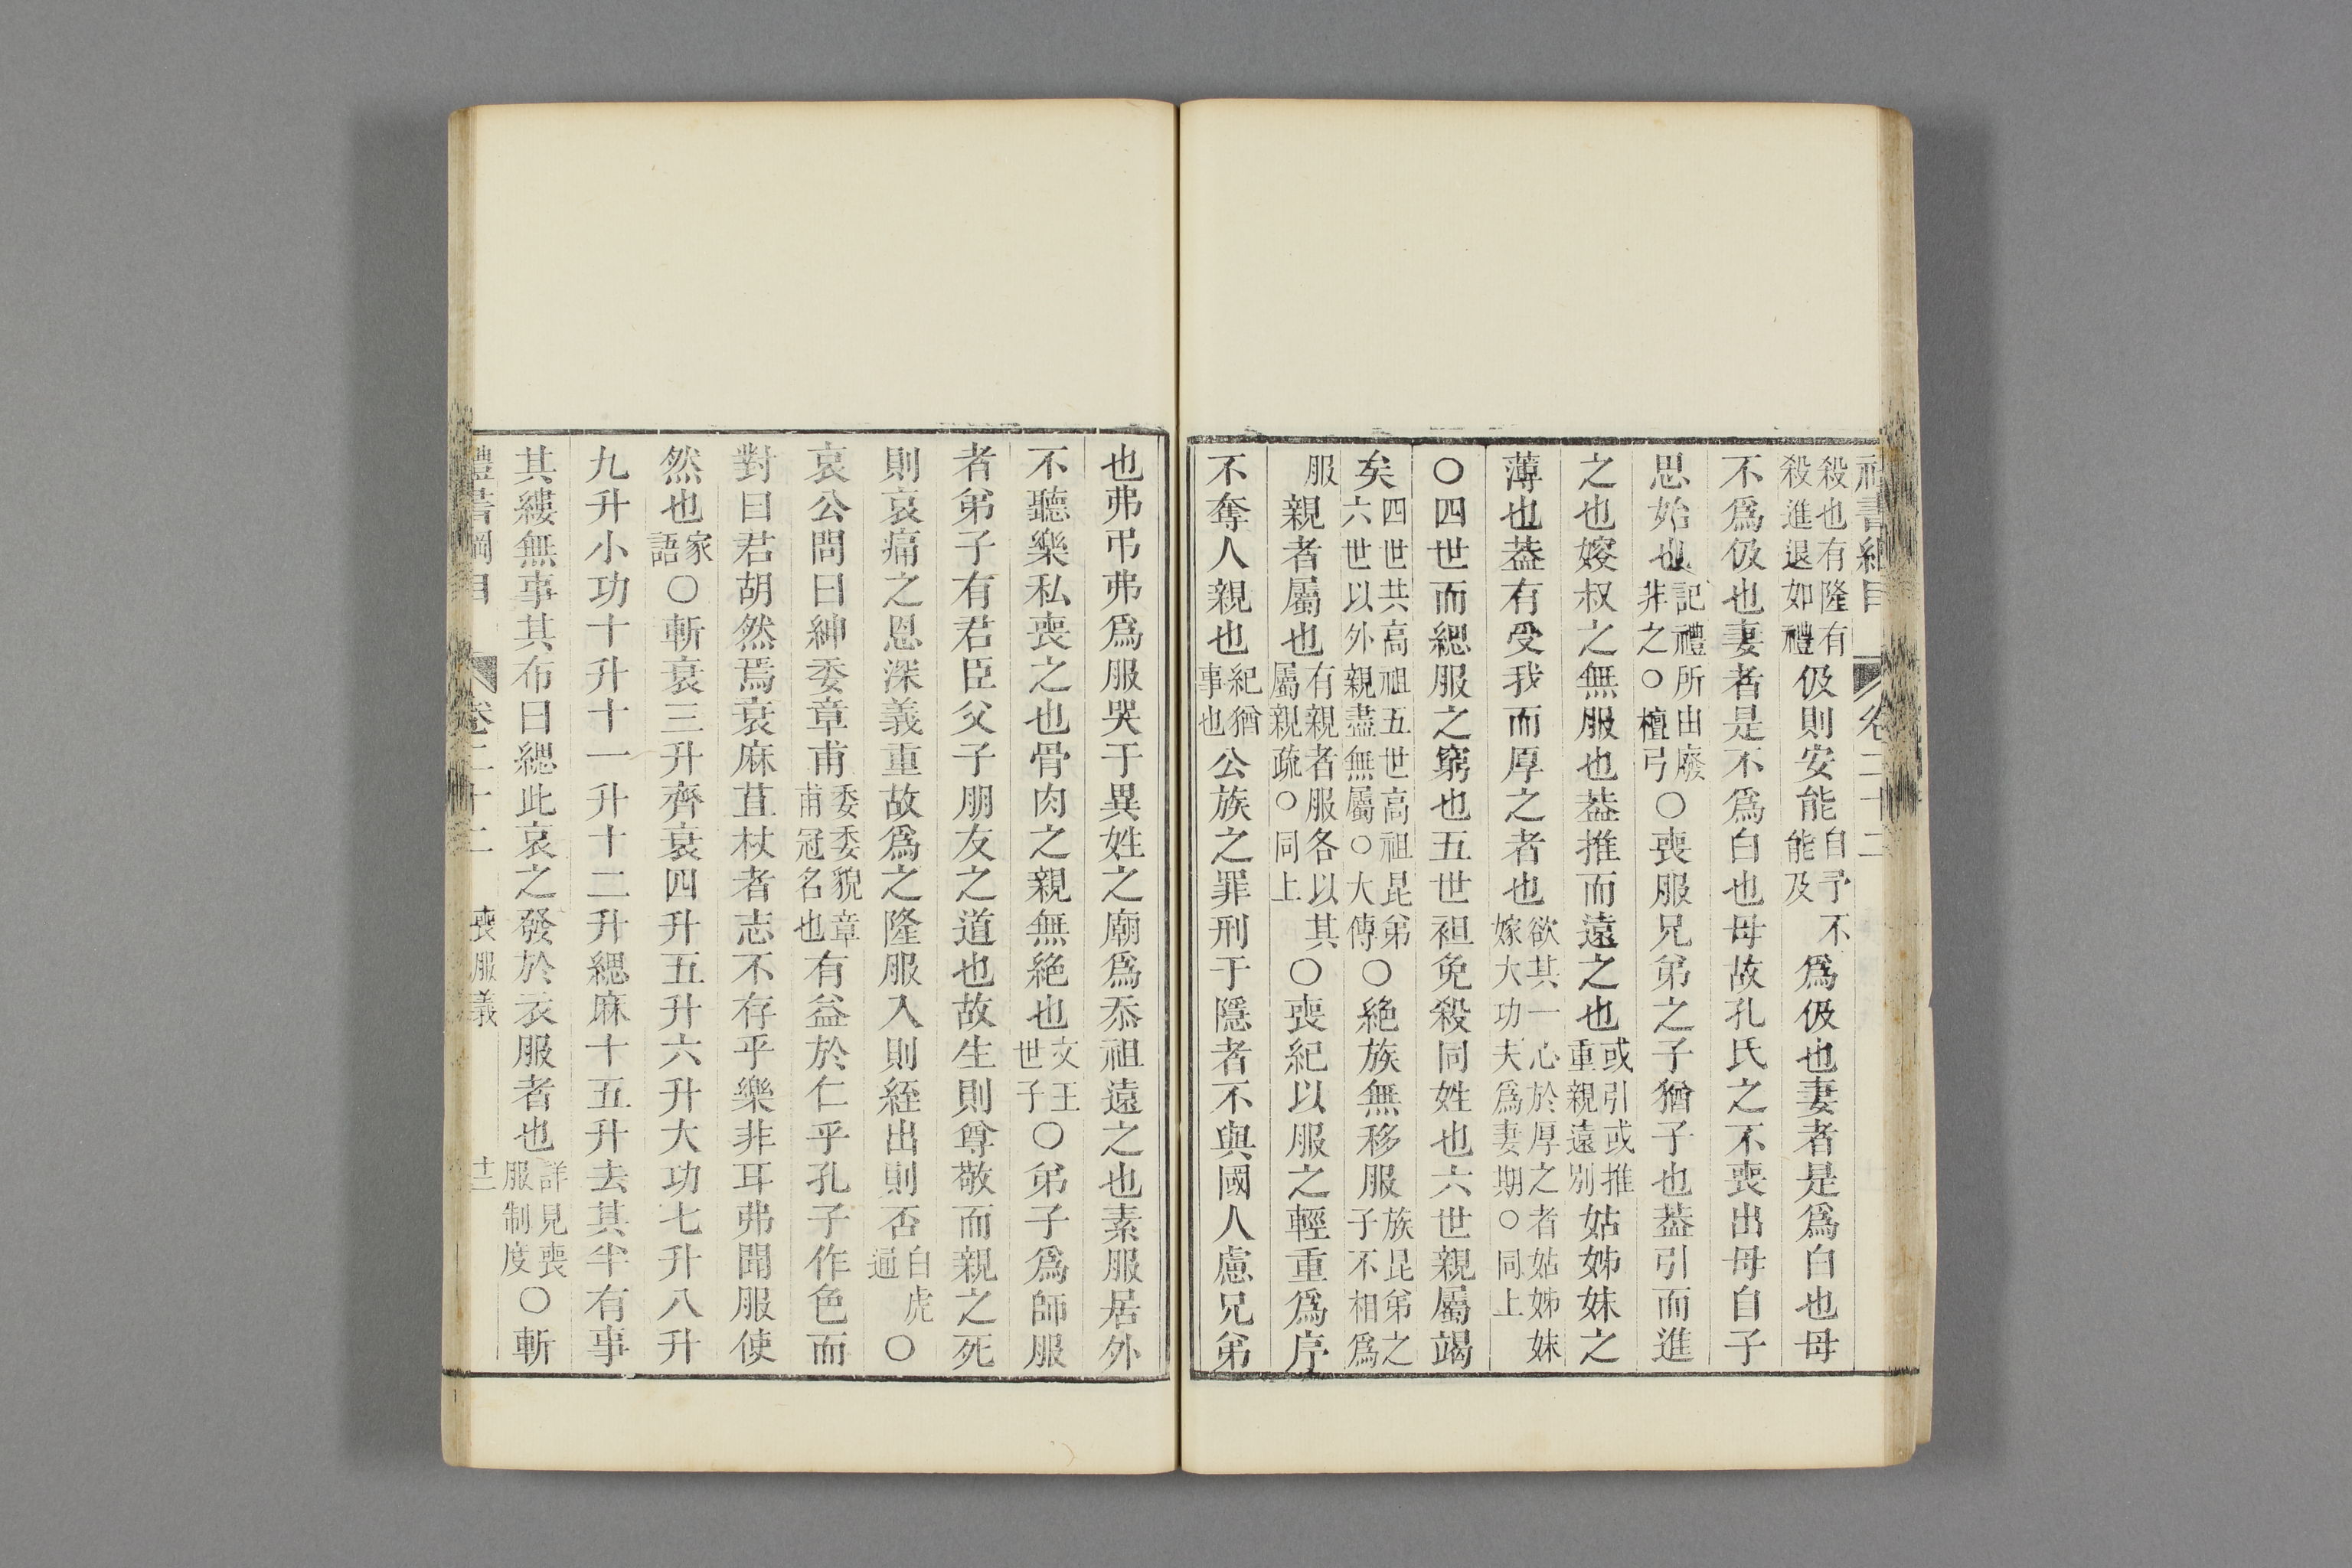 禮書綱目 卷二十二
殺也有隆有殺進退如禮伋則安能自予不能及爲伋也妻者是爲白也母
不爲伋也妻者是不爲白也母故孔氏之不喪出母自子
思始也記禮所由廢非之○檀弓○喪服兄弟之子猶子也葢引而進
之也嫂叔之無服也葢推而遠之也或引或推重親遠別姑姊妹之
薄也葢有受我而厚之者也欲其一心於厚之者姑姊妹嫁大功夫爲妻期○同上
○四世而緦服之窮也五世袒免殺同姓也六世親屬竭
矣四世共高祖五世高祖昆弟六世以外親盡無屬○大傳○絶族無移服族昆弟之子不相爲
服親者屬也有親者服各以其屬親疏○同上○喪紀以服之輕重爲序
不奪人親也紀猶事也公族之罪刑于隱者不與國人慮兄弟
也弗弔弗爲服哭于異姓之廟爲忝祖遠之也素服居外
不聽樂私喪之也骨肉之親無絶也文王世子○弟子爲師服
者弟子有君臣父子朋友之道也故生則尊敬而親之死
則哀痛之恩深義重故爲之隆服入則絰出則否白虎通○
哀公問曰紳委章甫委委貌章甫冠名也有益於仁乎孔子作色而
對曰君胡然焉衰麻苴杖者志不存乎樂非耳弗聞服使
然也家語○斬衰三升齊衰四升五升六升大功七升八升
九升小功十升十一升十二升緦麻十五升去其半有事
其縷無事其布曰緦此哀之發於衣服者也詳見喪服制度○斬
禮書綱目 卷二十二 喪服義 十三